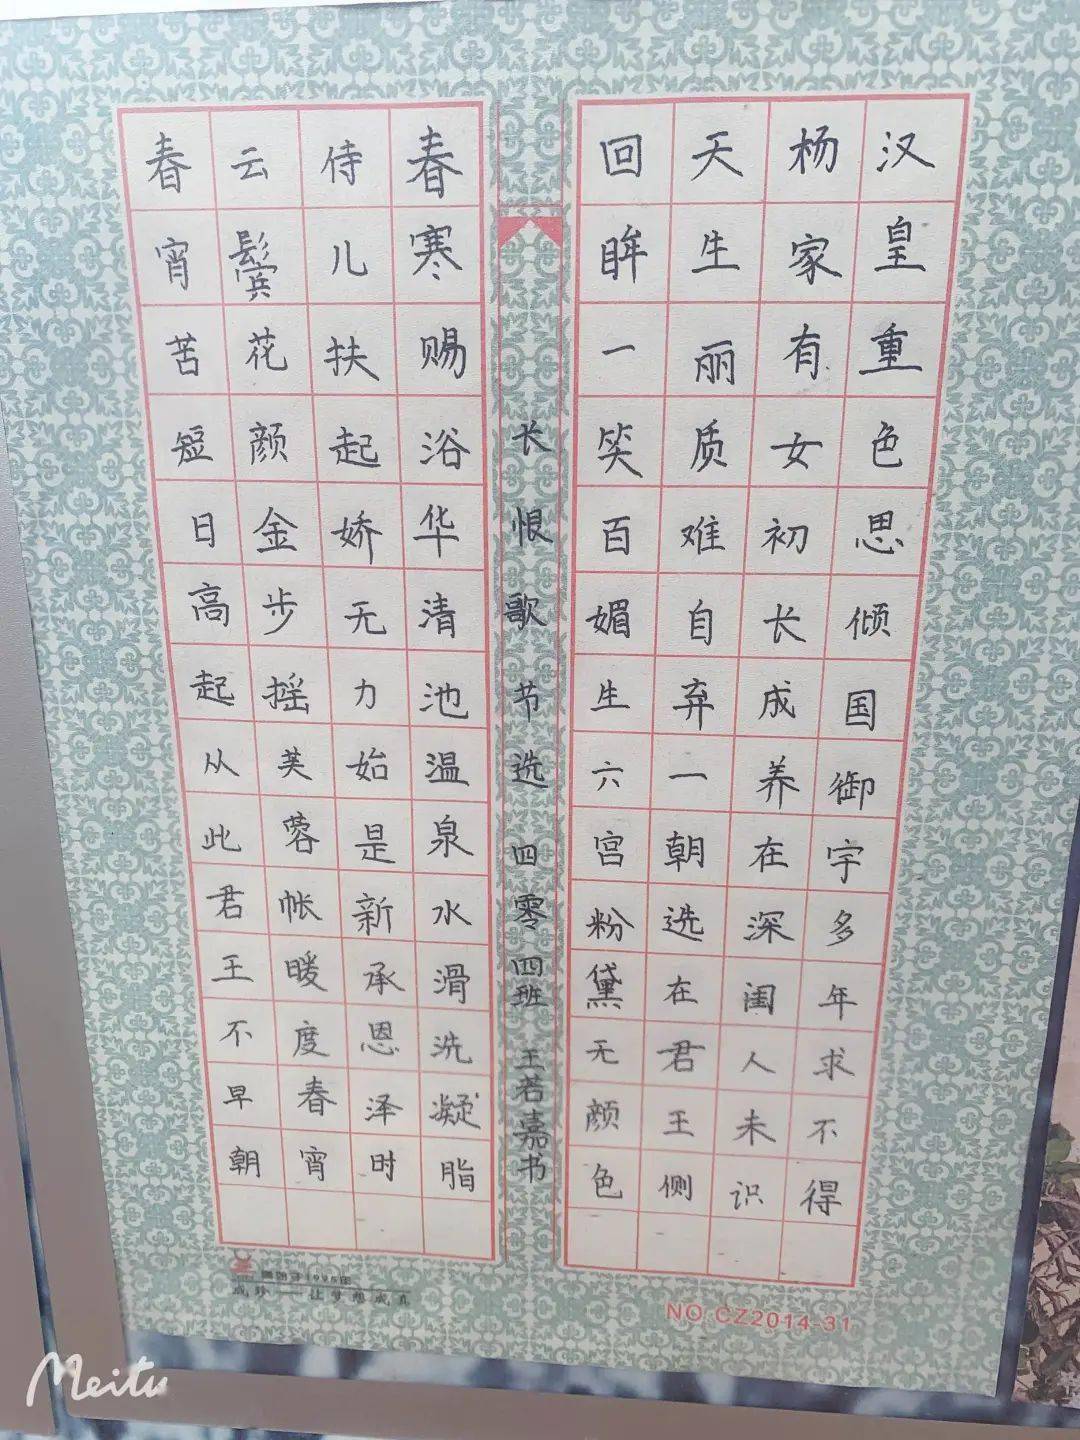 汉皇重色思倾国御宇多年求不得
杨家有女初长成养在深闺人未识
天生丽质难自弃一朝选在君王侧
回眸一笑百媚生六宫粉黛无颜色
长恨歌节选 四零四班 王若嘉书
春寒赐浴华清池温泉水滑洗凝脂
侍儿扶起娇无力始是新承恩泽时
云鬓花颜金步摇芙蓉帐暖度春宵
春宵苦短日高起从此君王不早朝
1995年
让梦想成真
NO:CZ2014-31
Meitu